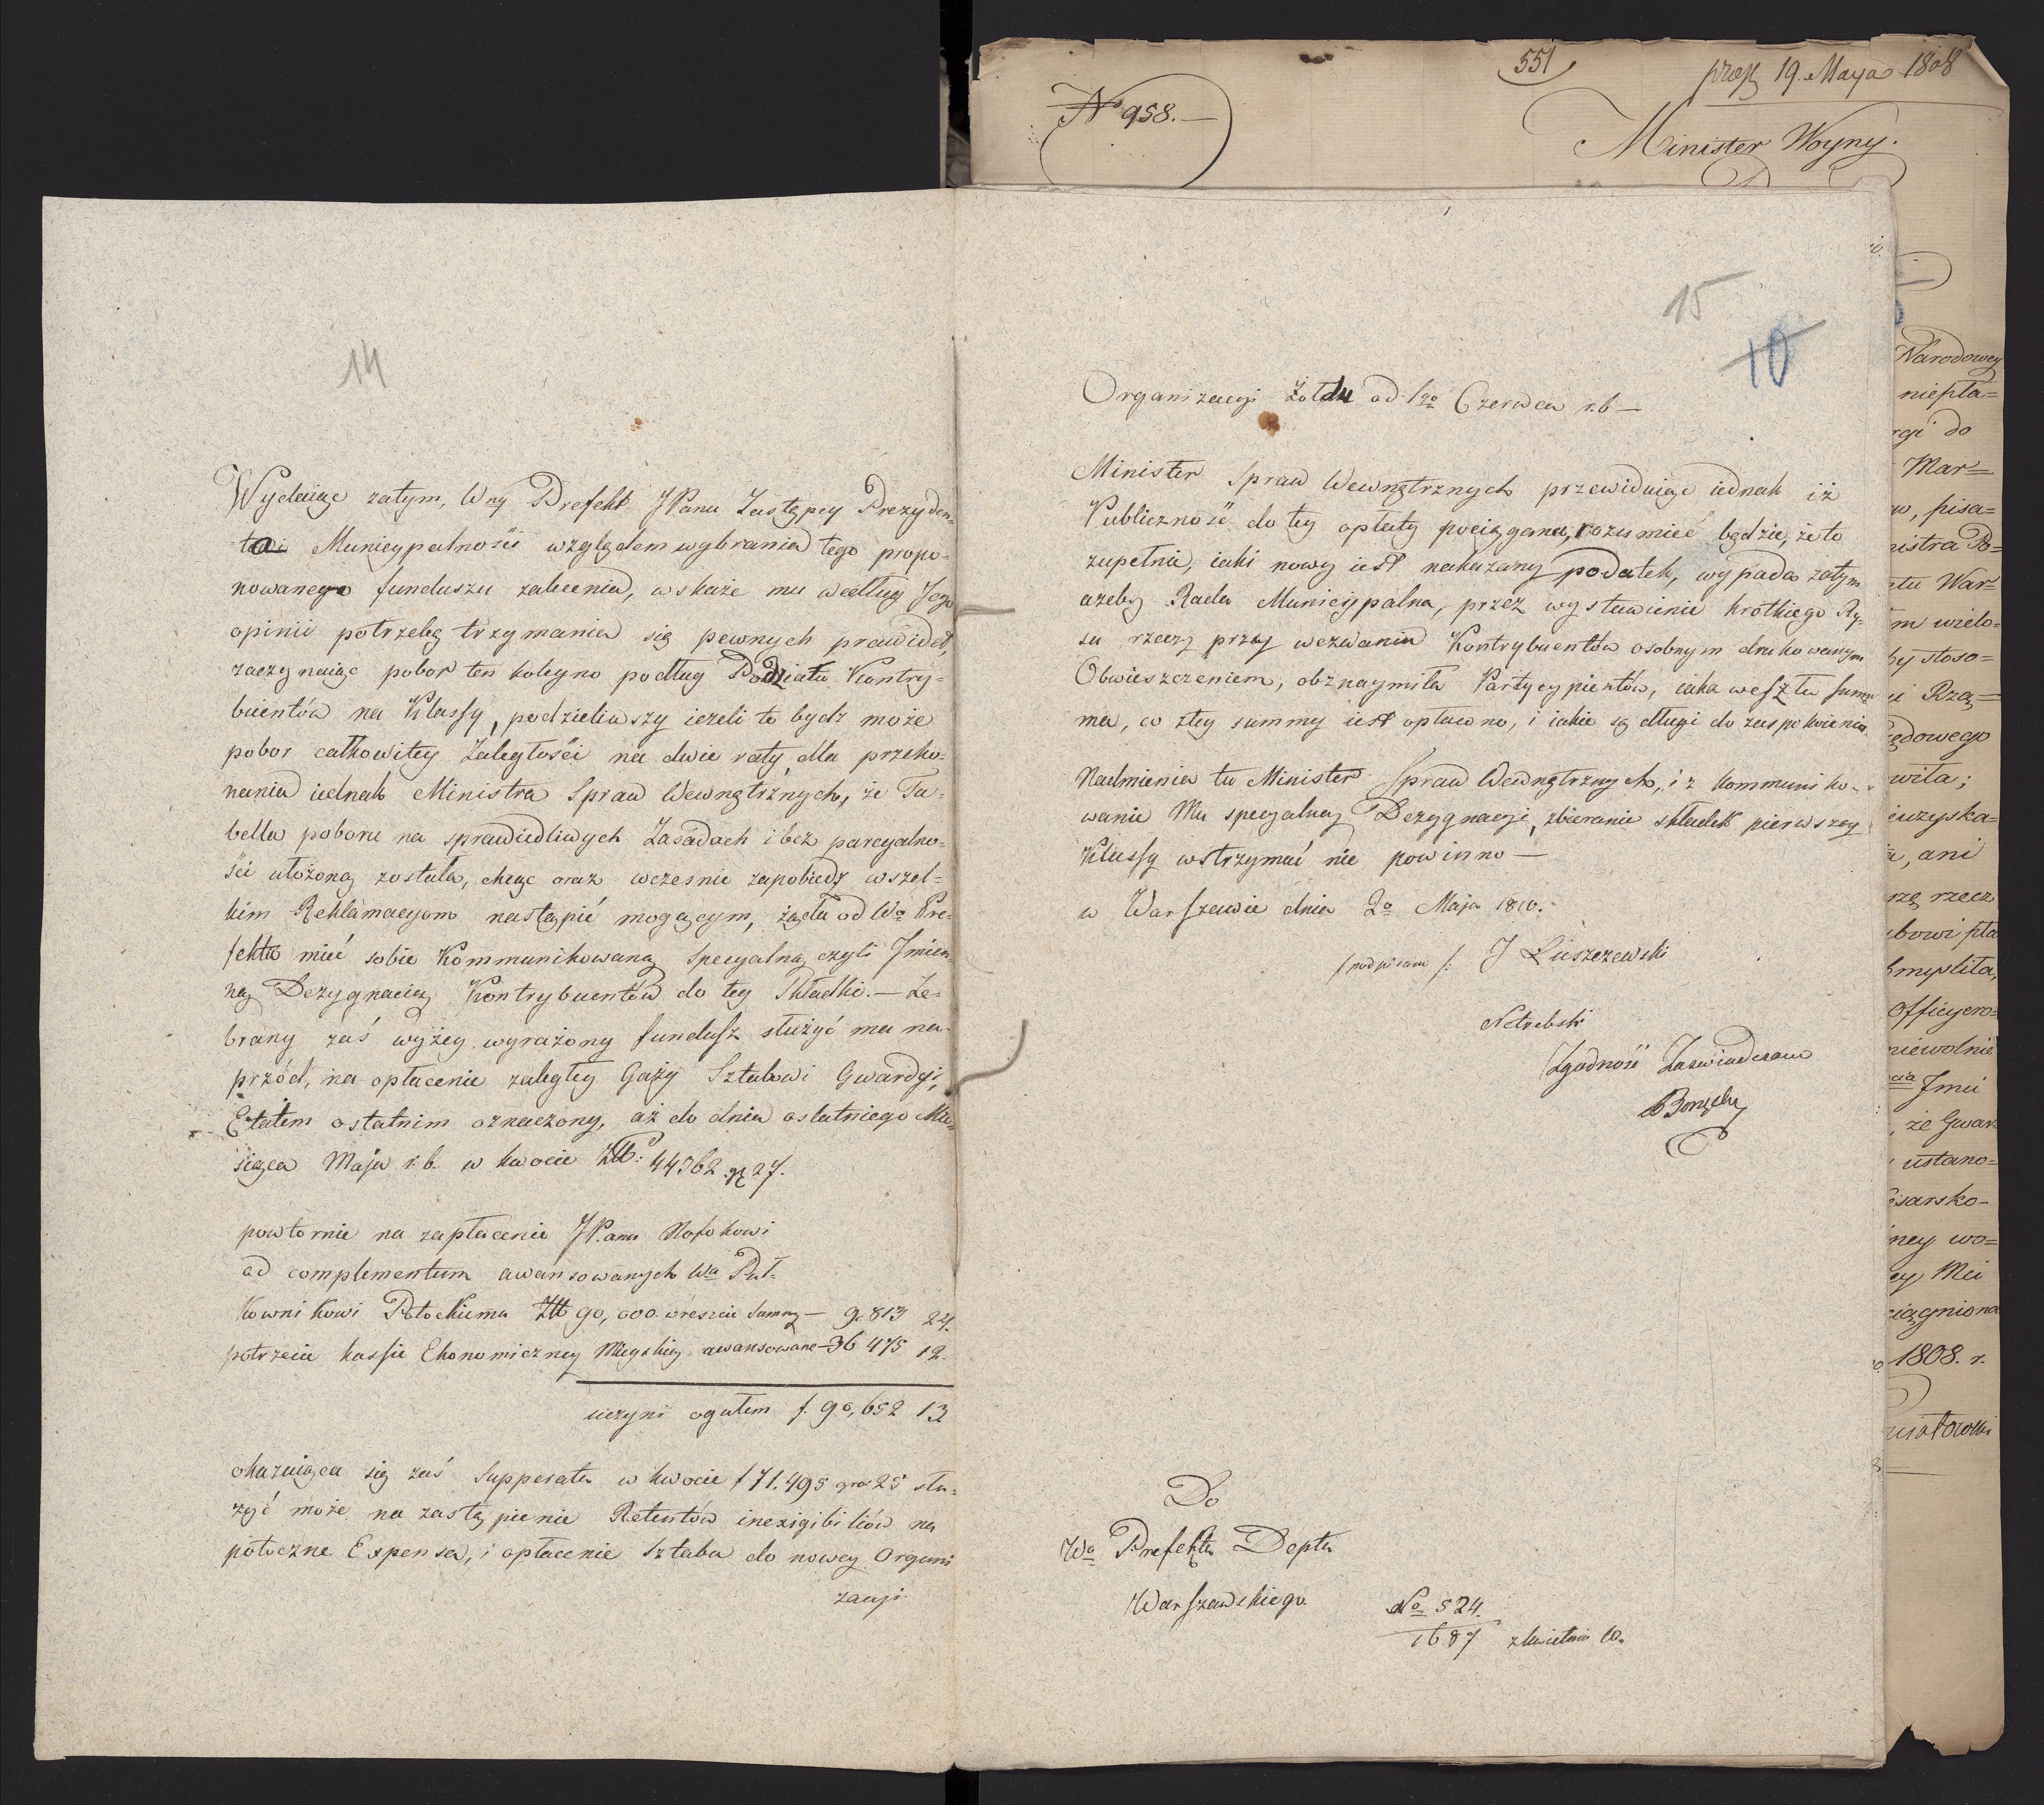 14
Wydaiąc zatym, Wny Prefekt JPanu Zastępcy Prezyden-
ta i Municypalności względem wybrania tego propo-
nowanego funduszu zalecenia, wskaże mu według Jego
opinii potrzebę trzymania się pewnych prawideł,
zaczynaiąc pobor ten koleyno podług Podziału Kontry-
buentów na Klassy, podzieliwszy ieżeli to bydź może
pobor całkowitey Zaległości na dwie raty, dla przeko-
nania iednak Ministra Spraw Wewnętrznych, że Ta-
bella poboru na sprawiedliwych Zasadach i bez parcyalno-
ści ułożoną została, chcąc oraz wcześnie zapobiedz wszel-
kim Reklamacyom nastąpić mogącym, żąda od Wo Pre-
fekta mieć sobie Kommunikowaną specyalną czyli Jmien
ną Dezygnacią Kontrybuentów do tey Składki. — Ze-
brany zaś wyżey wyrażony fundusz służyć ma na-
przód, na opłacenie zaległey Gaży Sztabowi Gwardyi,
Etatem ostatnim oznaczony, aż do dnia ostatniego Mie-
siąca Maja r.b. w kwocie Złł: 44362 gr 27.
powtornie na zapłacenie JPanu
ad complementum awansowanych Wu Puł-
kownikowi Potockiemu Złł 90,000. wreszcie Summy — 9813 24.
potrzecie kassie Ekonomiczney Mieyskiey awansowane — 36 475 12.
uczyni ogułem f. 90,652 13
okazuiąca się zaś Supperata w kwocie f 71.495 gro 25 słu-
żyć może na zastąpienie Retentów inexigibiliów na
potoczne Expensa, i opłacenie Sztabu do nowey Organi
zacyi
15
10
Organizacyi Żołdu od 1go Czerwca r.b —
Minister Spraw Wewnętrznych przewiduiąc iednak iż
Publiczność do tey opłaty pociągana, rozumieć będzie, że to
zupełnie, iaki nowy iest nakazany podatek, wypada zatym
ażeby Rada Municypalna, przez wystawienie krótkiego Ry-
su rzeczy przy wezwaniu Kontrybuentów osobnym drukowanym
Obwieszczeniem, obznaymiła Partycypientów, iaka weszła Sum
ma, co z tey summy iest opłacono, i iakie są długi do zaspokoienia.
Nadmienia tu Minister Spraw Wewnętrznych, iż kommuniko-
wanie Mu specyalney Dezygnacyi, zbieranie składek pierwszey
Klassy wstrzymać nie powinno —
w Warszawie dnia 2o Maja 1810.
/podpisano/: J Łuszczewski
Netrebski
Zgodność Zaświadczam
Do
Wo Prefekta Deptu
Warszawskiego.
No 524.
1687 z kwietnia 10.
551
prez 19. Maya 1808
No 958. —
Minister Woyny.
Narodowey
niepła=
rgi do
Mar=
w, pisa=
nistra Po=
ntu War=
m wielo=
by stoso=
i Rzą=
ędowego
wiła;
euzyska=
a, ani
rzę rzecz
bowi pła
myslita,
Officyero=
niewolnic
cia Jmci
, że Gwar
ustano=
esarsko-
ney wo=
ey Mci
ciągniona
1808. r.
niatowski